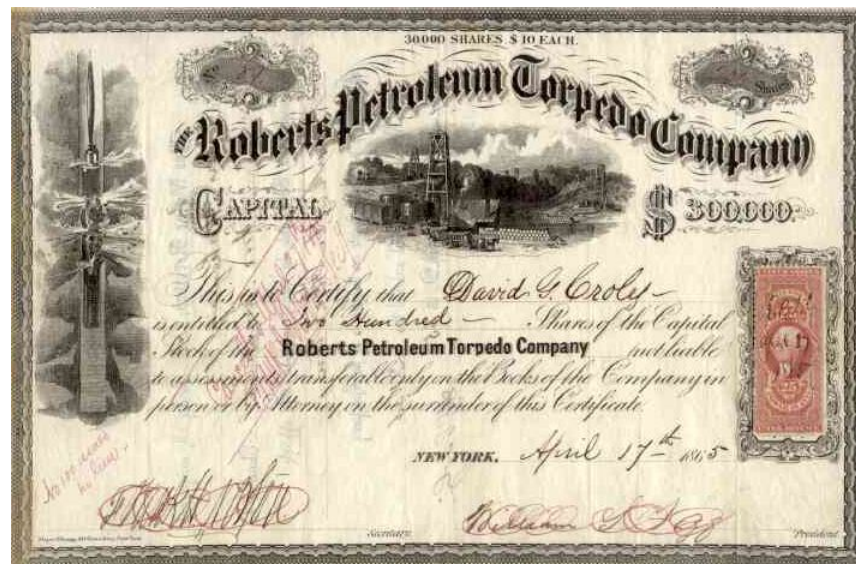 30000 SHARES. $10 EACH.
No 37
Shares
THE Roberts Petroleum Torpedo Company
CAPITAL $ 300,000.
This is to Certify that David G. Croly
is entitled to Two Hundred Shares of the Capital
Stock of the Roberts Petroleum Torpedo Company not liable
to assessments transferable only on the Books of the Company in
person or by Attorney on the surrender of this Certificate.
NEW YORK, April 17th 1865
Secretary.
President